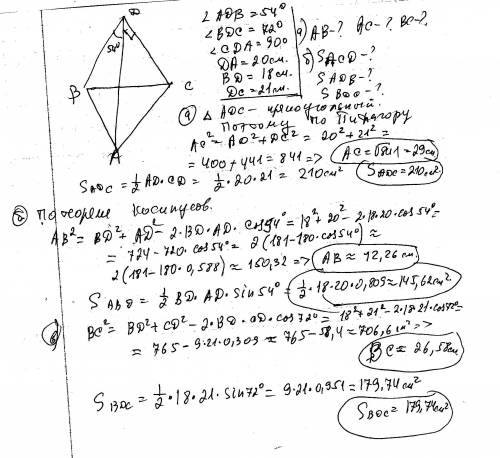 D
54°
B
C
A
∠ADB = 54°
∠BDC = 72°
∠CDA = 90°
DA = 20см.
BD = 18см.
DC = 21см.
а) AB-? AC-? BC-?
б) S ACD-?
S ADB-?
S BDC-?
а) △ ADC - прямоугольный.
Поэтому по Пифагору
AC² = AD² + DC² = 20² + 21² =
= 400 + 441 = 841 => AC = √841 = 29см
S ADC = 1/2 AD · CD = 1/2 · 20 · 21 = 210см² S ADC = 210см²
б) По теореме косинусов.
AB² = BD² + AD² - 2·BD·AD·cos54° = 18² + 20² - 2·18·20·cos54° =
= 724 - 720·cos54° = 2(181-180·cos54°) ≈
2(181-180·0,588) ≈ 150,32 => AB ≈ 12,26см
S ABD = 1/2 BD·AD·sin54° = 1/2·18·20·0,809 ≈ 145,62см²
BC² = BD² + CD² - 2·BD·CD·cos72° = 18² + 21² - 2·18·21·cos72° =
= 765 - 9·21·0,309 ≈ 765 - 58,4 ≈ 706,6см² =>
BC ≈ 26,58см
S BDC = 1/2 · 18 · 21 · sin72° = 9·21·0,951 = 179,74см²
S BDC = 179,74см²